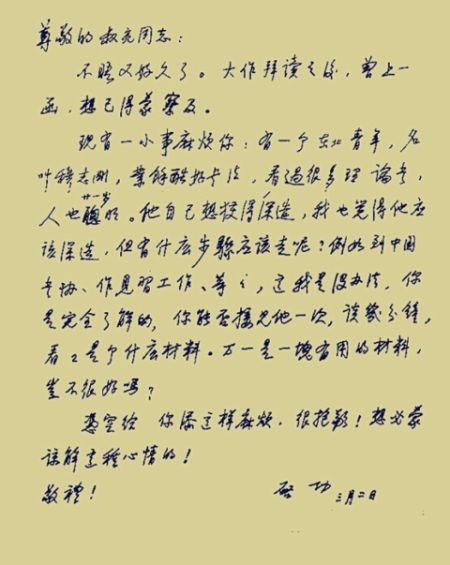 尊敬的叔亮同志：
不晤又好久了。大作拜读之後，曾上一
函，想已得蒙察及。
现有一小事麻烦你：有一个东北青年，名
叶志刚，業餘酷好书法，看過很多理論书，
廿一岁
人也聰明。他自己想得深造，我也覺得他应
该深造，但有什么步驟应该走呢？例如到中国
书协、作見習工作、等々，这我是没办法，你
是完全了解的，你能否接见他一次，谈幾分鐘，
看々是个什么材料。万一是一塊有用的材料，
岂不很好嗎？
憑空给你添这样麻烦，很抱歉！想必蒙
谅解这種心情的！
敬禮！
启功 三月二日